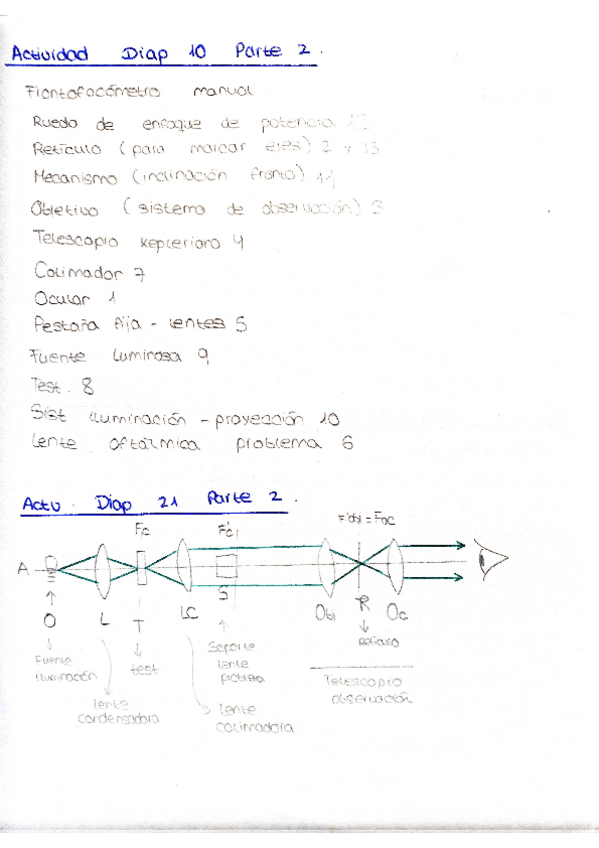 Actividad Diap 10 Parte 2.
Frontofocómetro manual
Rueda de enfoque de potencia 12
Retículo (para marcar ejes) 2 y 13
Mecanismo (inclinación fronto) 11
Objetivo (sistema de observación) 3
Telescopio kepleriano 4
Colimador 7
Ocular 1
Pestaña fija - lentes 5
Fuente luminosa 9
Test. 8
Sist iluminación - proyección 10
Lente oftálmica problema 6
Actv. Diap 21 Parte 2.
F'obj = Foc
Fc F'c
A
O L T LC S Obj R Oc
Fuente iluminación
test
lente condensadora
Soporte lente problema
lente colimadora
retículo
Telescopio observación